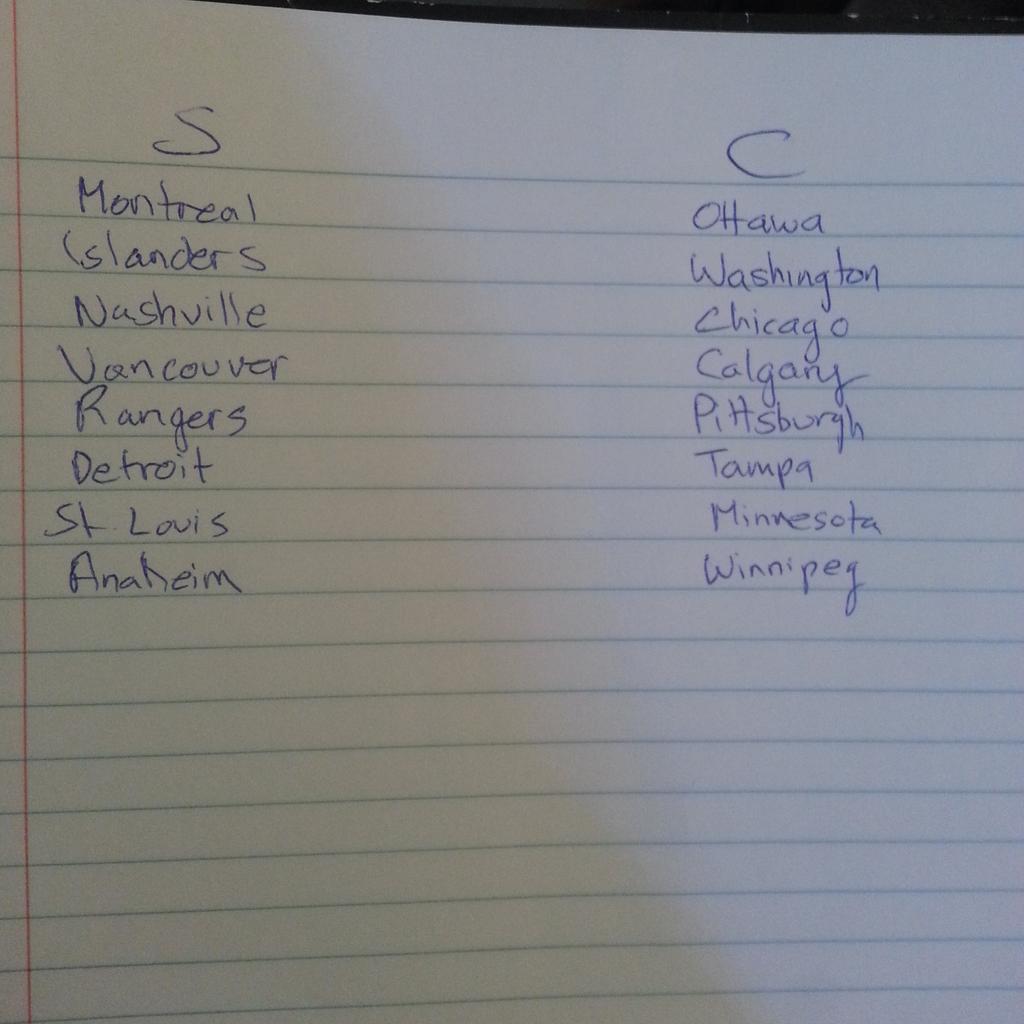 S C
Montreal Ottawa
Islanders Washington
Nashville Chicago
Vancouver Calgary
Rangers Pittsburgh
Detroit Tampa
St. Louis Minnesota
Anaheim Winnipeg